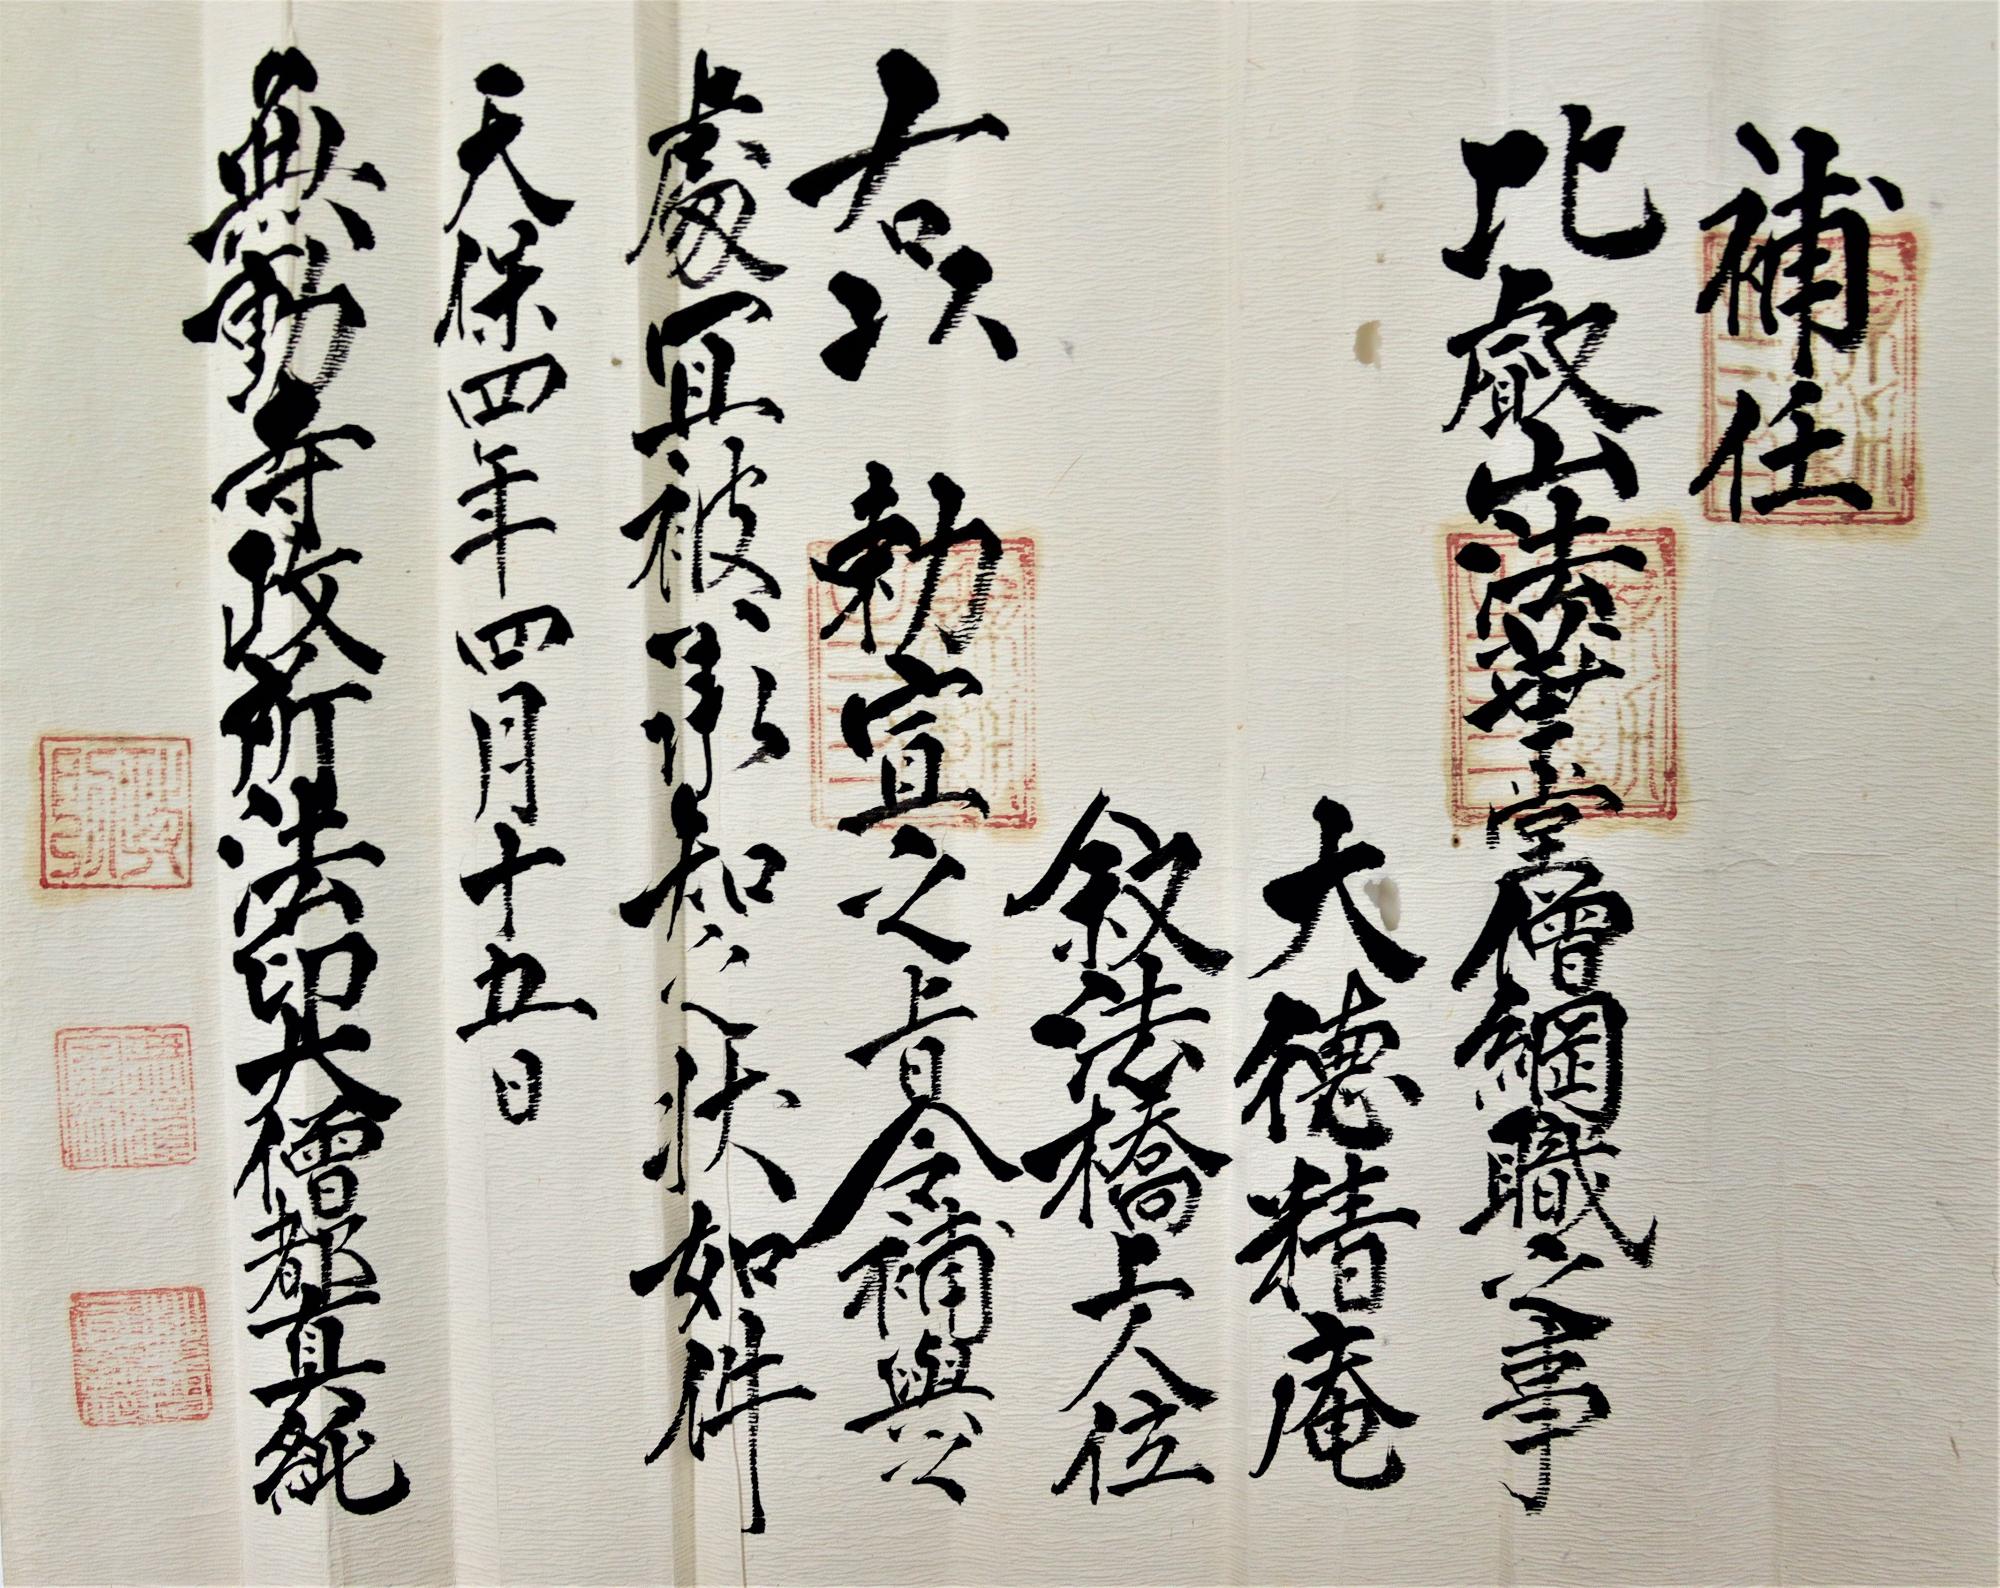 補任
比叡山法華堂僧綱職之事
大德精庵
叙法橋上人位
右以 勅宣之旨令補與之
處宜被承知之状如件
天保四年四月十五日
無動寺政所法印大僧都真